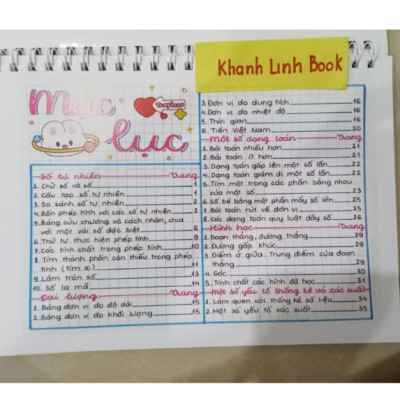 Khanh Linh Book
Mục lục
Số tự nhiên Trang
1. Chữ số và số 1
2. Cấu tạo số tự nhiên 1
3. So sánh số tự nhiên 2
4. Bốn phép tính với các số tự nhiên 2
5. Bảng cửu chương và cách nhân, chia
với một vài số đặc biệt 6
6. Thứ tự thực hiện phép tính 9
7. Các tính chất trong phép tính 10
8. Tìm thành phần còn thiếu trong phép
tính (tìm x) 11
9. Làm tròn số 13
10. Số la mã 14
Đại lượng Trang
1. Bảng đơn vị đo độ dài 15
2. Bảng đơn vị đo khối lượng 15
3. Đơn vị đo dung tích 16
4. Đơn vị đo nhiệt độ 16
5. Thời gian 16
6. Tiền Việt Nam 20
Một số dạng toán Trang
1. Bài toán nhiều hơn 21
2. Bài toán ít hơn 21
3. Dạng toán gấp lên một số lần 22
4. Dạng toán giảm đi một số lần 22
5. Tìm một trong các phần bằng nhau
của một số
6. Số bé bằng một phần mấy số lớn 25
7. Bài toán rút về đơn vị
8. Các dạng toán quy luật dãy số 26
Hình học Trang
1. Đoạn thẳng, đường thẳng 29
2. Đường gấp khúc 29
3. Điểm ở giữa. Trung điểm của đoạn
thẳng 29
4. Góc 30
5. Tính chất các hình đã học 31
Một số yếu tố thống kê và xác suất
1. Làm quen với thống kê số liệu 35
2. Một số yếu tố xác suất 35